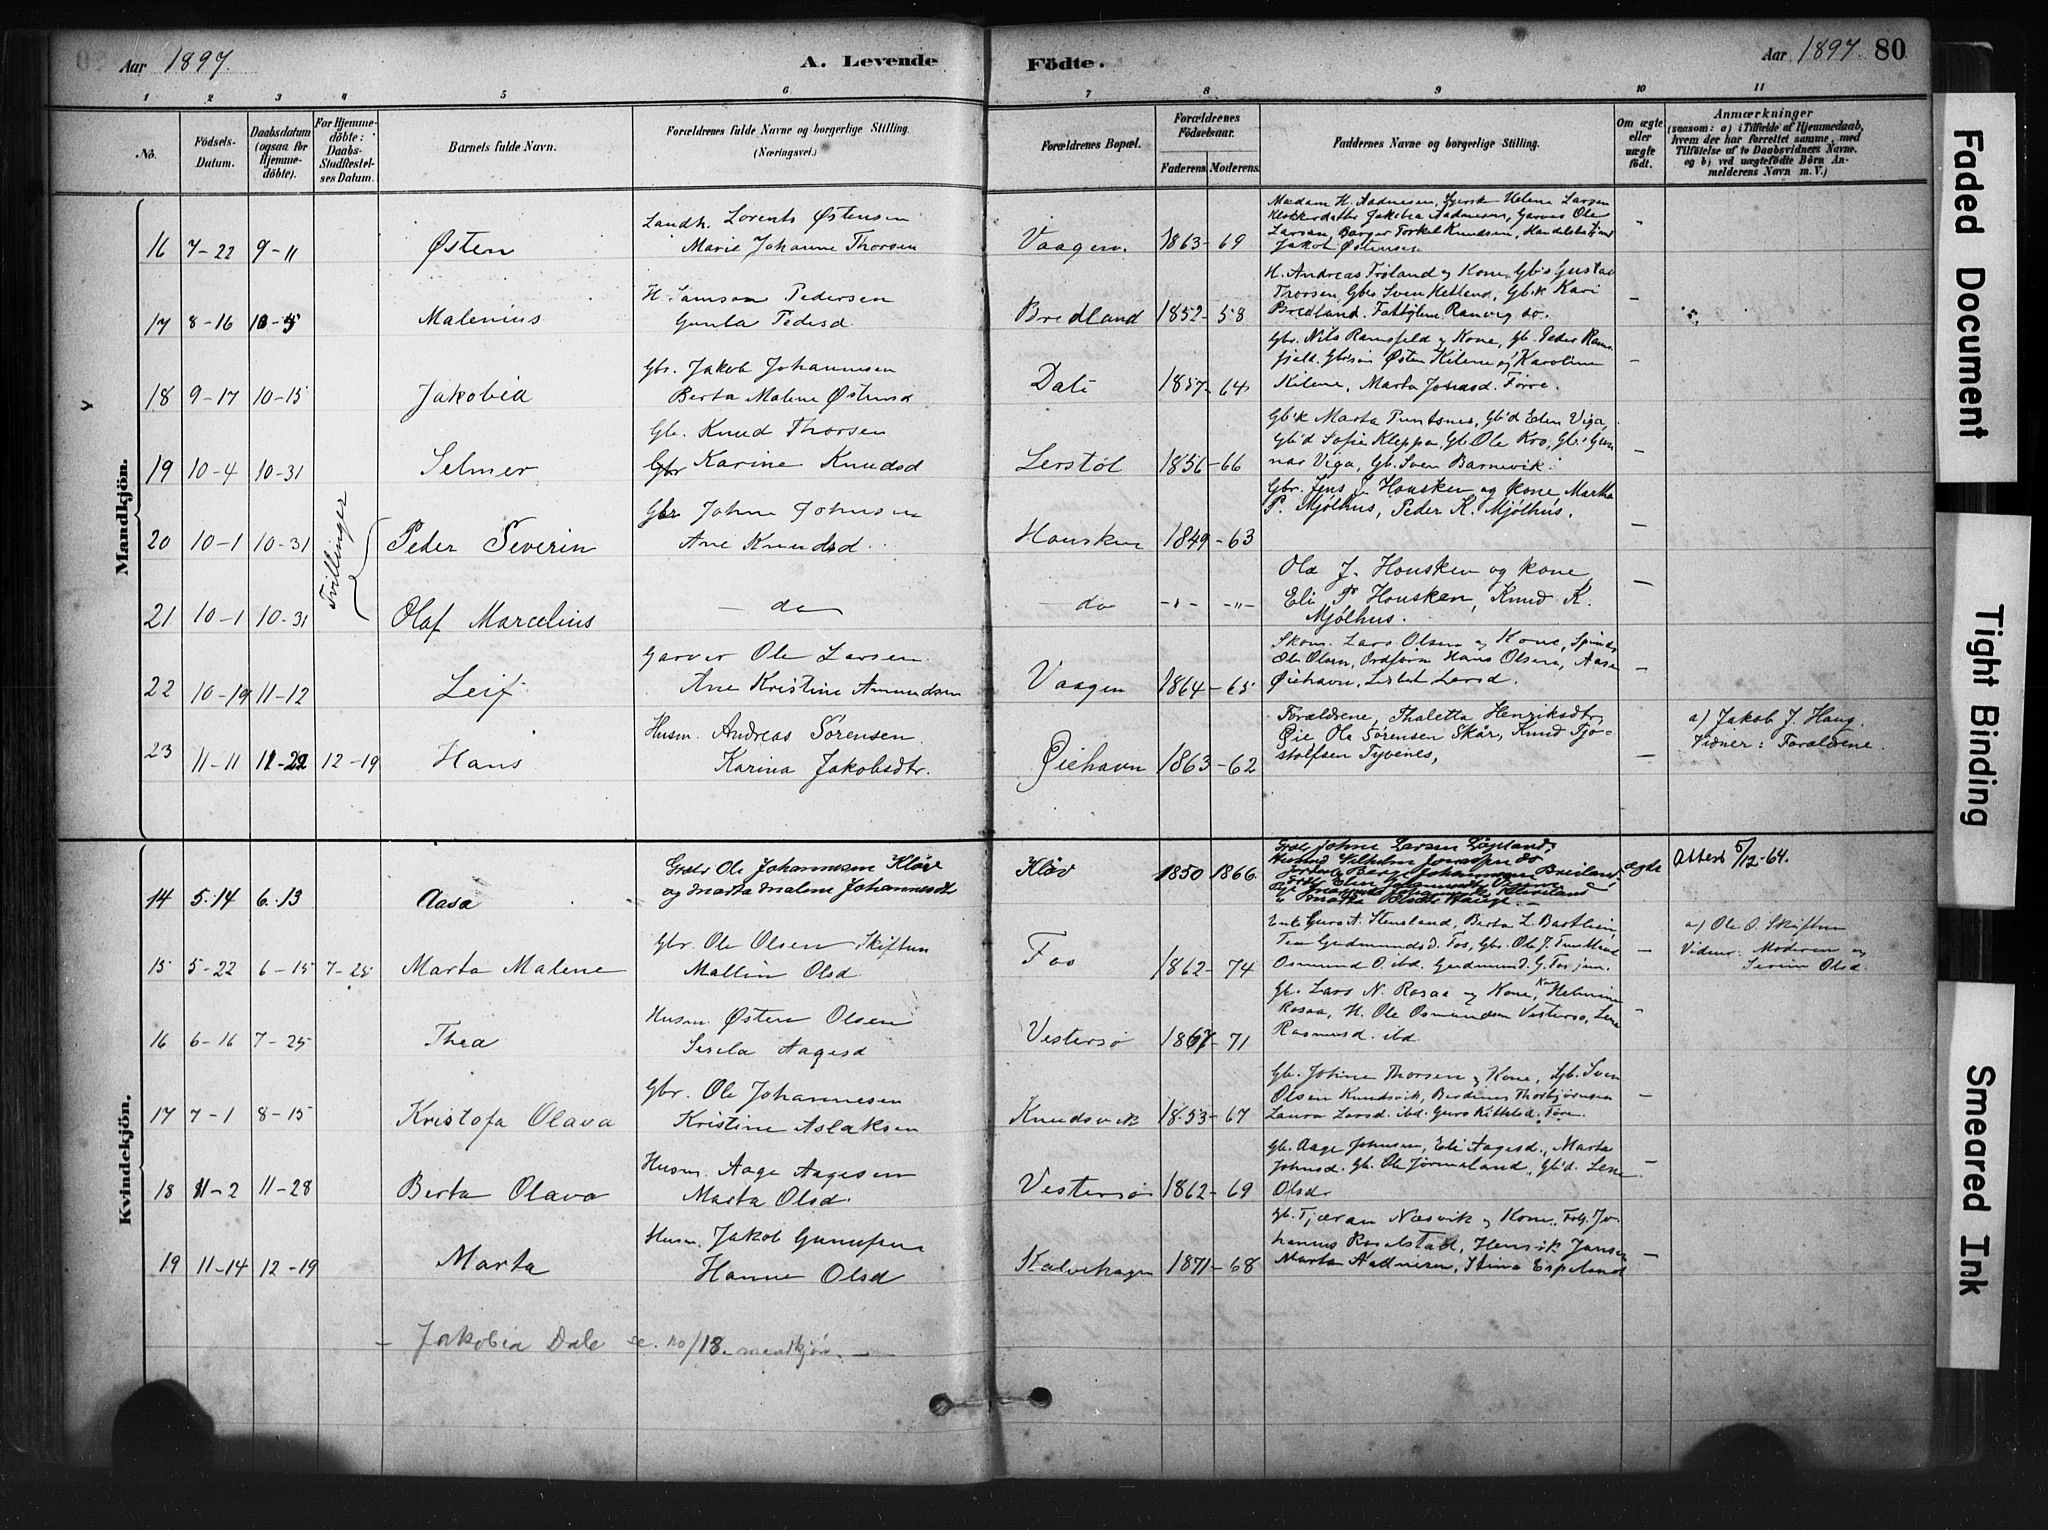 Aar 1897.
A. Levende
Födte.
Aar 1897. 80
1 2 3 4 5 6 7 8 9 10 11
No.
Födsels-Datum.
Daabsdatum (ogsaa for Hjemmedöbte).
For Hjemmedöbte: Daabs-Stadfestelses Datum.
Barnets fulde Navn.
Forældrenes fulde Navne og borgerlige Stilling. (Næringsvei.)
Forældrenes Bopæl.
Forældrenes Födselsaar.
Faderens. Moderens.
Faddernes Navne og borgerlige Stilling.
Om ægte eller uægte födt.
Anmærkninger
(saasom: a) i Tilfælde af Hjemmedaab, hvem der har forrettet samme, med Tilföielse af to Daabsvidners Navne. og b) ved uægtefödte Börn Anmelderens Navn m. V.)
Mandkjön.
16 7-22 9-11 Østen
Landh. Lorents Østensen
Marie Johanne Thorsen
Vaagen. 1863-69
Madam H. Aadnesen, Helene Larsen
Klokkerdatter Jakobia Aadnesen, Garver Ole
Larsen, Borger Torkel Knudsen,
Jakob Østensen
17 8-16 Malenius
H. Samson Pedersen
Gunla Pedersd.
Bredland 1852-58
H. Andreas Frøland og Kone, Gbs Gustav
Thorsen, Gbrs Sven Hetland, Gbk Kari
Bredland. Ranveig do.
18 9-17 10-15 Jakobia
Gbr. Jakob Johannesen
Berta Malene Østensd
Dale 1857-64
Gbr. Nils Ramsfeld og Kone, Gb. Peder Rams-
fjeld. Østen Kilene og Karoline
Kilene, Marta Jonasd. Førre.
19 10-4 10-31 Selmer
Gb. Knud Thorsen
Karine Knudsd
Lerstøl 1856-66
Gbk Marta Puntsnes, Gbd Elen Viga,
Gbd Sofie Kleppa, Gb. Ole Kro, Gbs Gun-
nar Viga, Gb. Sven Barnevik.
Tvillinger
20 10-1 10-31 Peder Severin
Gbr Johne Johnsen
Ane Knudsd.
Housken 1849-63
Gbr. Jens J. Housken og Kone, Martha
P. Mjølhus, Peder K. Mjølhus.
21 10-1 10-31 Olaf Marcelius
- do - do -"- -"-
Ola J. Housken og Kone,
Eli P. Housken, Knud K.
Mjølhus.
22 10-19 11-12 Leif
Garver Ole Larsen.
Ane Kristine Amundsen
Vaagen 1864-65
Skom. Lars Olsen og Kone,
Ole Olsen, Ordfører Hans Olsen, Aasa
Øiehavn, Lisbet Larsd.
23 11-11 11-22 12-19 Hans
Husm. Andreas Sørensen.
Karina Jakobsdtr.
Øiehavn 1863-62
Forældrene, Thaletta Henriksdtr.
Øie, Ole Sørensen Skår, Knud Tjo-
stolfsen Tyvenes,
a) Jakob J. Haug.
Vidner: Forældrene.
Kvindekjön.
14 5.14 6.13 Aasa
Ole Johannesen Kløv
og Marta Malene Johannesdtr
Kløv 1850 1866.
Johne Larsen
ægte
Attest 5/12-64.
15 5-22 6-15 7-25 Marta Malene
Gbr. Ole Olsen Skiftun
Mallin Olsd.
Fos 1862-74
Enke Guro A. Stensland, Berta L. Bastlien,
Tea Gudmundsd. Fos, Gbr. Ole J. Tuntland
Osmund O. ibd. Gudmund G. Fos jun.
a) Ole O. Skiftun
Vidner: Moderen og
Serine Olsd.
16 6-16 7-25 Thea
Husm. Østen Olsen
Sesela Aagesd
Vestersø 1867-71
Gb. Lars N. Rosaa og Kone, Helmine
Rosaa, H. Ole Osmundsen Vestersø, Lene
Rasmusd. ibd.
17 7-1 8-15 Kristofa Olava
Gbr. Ole Johannesen
Kristine Aslaksen
Knudsvik 1853-67
Gb. Johne Thorsen og Kone, Gb. Sven
Olsen Knudsvik, Berdines Thorbjørnsen
Laura Larsd. ibd. Guro Kittelsd. Føre.
18 11-2 11-28 Berta Olava
Husm. Aage Aagesen
Marta Olsd.
Vestersø 1862-69
Gb. Aage Johnsen, Eli Aagesd., Marta
Johnsd. Gb. Ole Jørmeland, Gbd. Lene
Olsd.
19 11-14 12-19 Marta
Husm. Jakob Gunufsen
Hanne Olsd
Kalvehagen 1871-68
Gb. Tjæran Næsvik og Kone. Folg. Jo-
hannes Roselstad, Henrik Jansen
Marta Aadnesen, Stina Espeland
- Jakobia Dale se. no/18. mandkjøn. -
Faded Document
Tight Binding
Smeared Ink